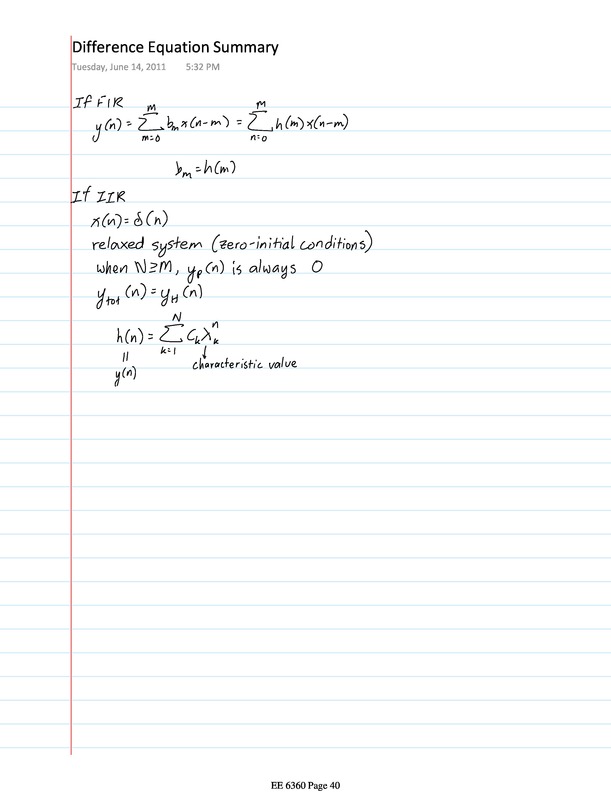 Difference Equation Summary
Tuesday, June 14, 2011 5:32 PM
If FIR
y(n) = M∑m=0 bₘ x(n-m) = M∑n=0 h(m) x(n-m)
bₘ = h(m)
If IIR
x(n) = δ(n)
relaxed system (zero-initial conditions)
when N≥M, yₚ(n) is always 0
y_tot(n) = y_H(n)
h(n) = N∑k=1 Cₖ λₖⁿ
|| ↓
y(n) characteristic value
EE 6360 Page 40